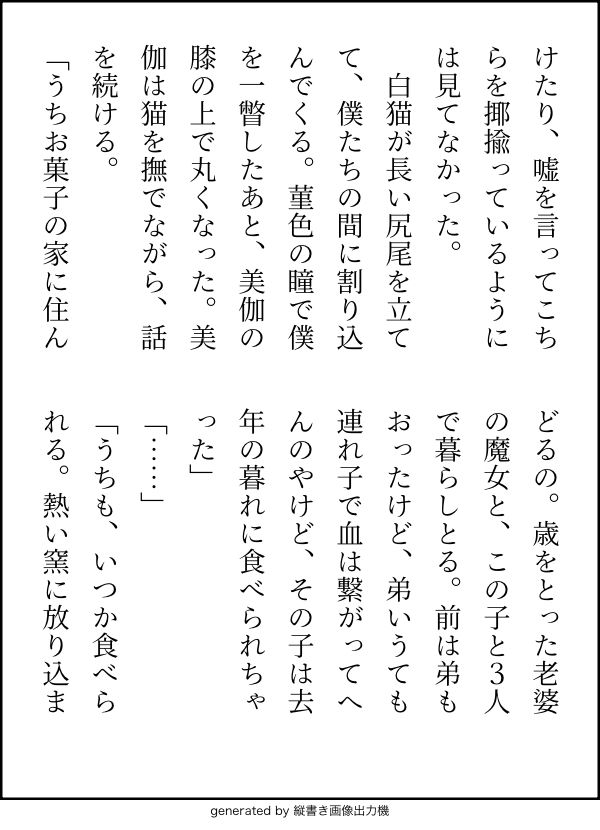 けたり、嘘を言ってこち
らを揶揄っているように
は見てなかった。
　白猫が長い尻尾を立て
て、僕たちの間に割り込
んでくる。菫色の瞳で僕
を一瞥したあと、美伽の
膝の上で丸くなった。美
伽は猫を撫でながら、話
を続ける。
「うちお菓子の家に住ん
どるの。歳をとった老婆
の魔女と、この子と３人
で暮らしとる。前は弟も
おったけど、弟いうても
連れ子で血は繋がってへ
んのやけど、その子は去
年の暮れに食べられちゃ
った」
「……」
「うちも、いつか食べら
れる。熱い窯に放り込ま
generated by 縦書き画像出力機